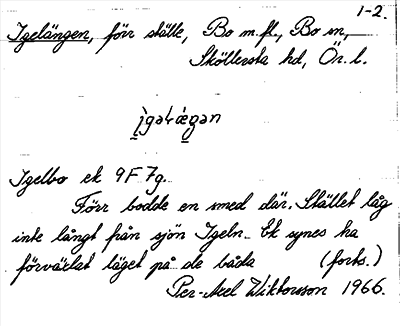 1-2.
Igelängen, förr ställe, Bo m.fl., Bo sn,
Sköllersta hd, Ör. l.
Igelbo ek 9F 7g.
Förr bodde en smed där. Stället låg
inte långt från sjön Igeln. Ek synes ha
förväxlat läget på de båda (forts.)
Per-Axel Wiktorsson 1966.